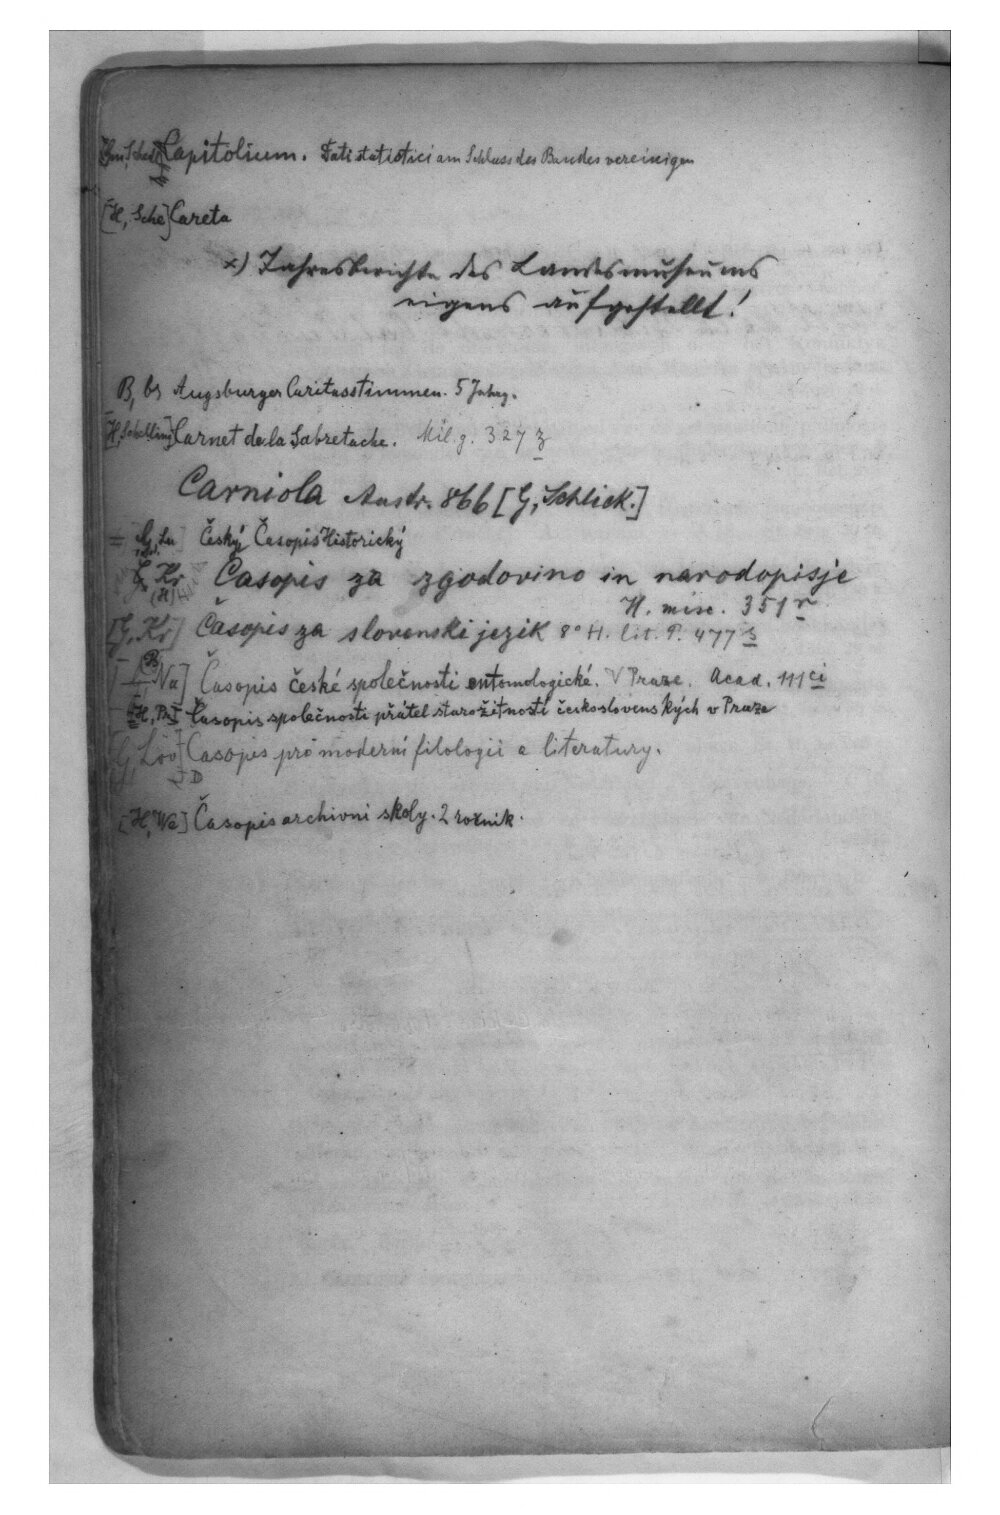 Capitolium. Dati statistici am Schluss des Bandes vereinigen
[H, Sche] Careta
x) Jahresberichte des Landesmuseums
eigens aufgestellt!
B, bs Augsburger Caritasstimmen. 5 Jahrg.
[H, Schilling] Carnet de la Sabretache. Mil. g. 327 z
Carniola Austr. 866 [G, Schlick.]
Český Časopis Historický
G, Kr Časopis za zgodovino in narodopisje
(H)
H. misc. 351 r
[G, Kr] Časopis za slovenski jezik 8° H. lit. P. 477 s
Na] Časopis české společnosti entomologické. V Praze. Acad. 111 ci
Časopis společnosti přátel starožitností československých v Praze
[G, Löv] Casopis pro moderní filologii a literatury.
D
[H, We] Časopis archivni skoly. 2 rožnik.